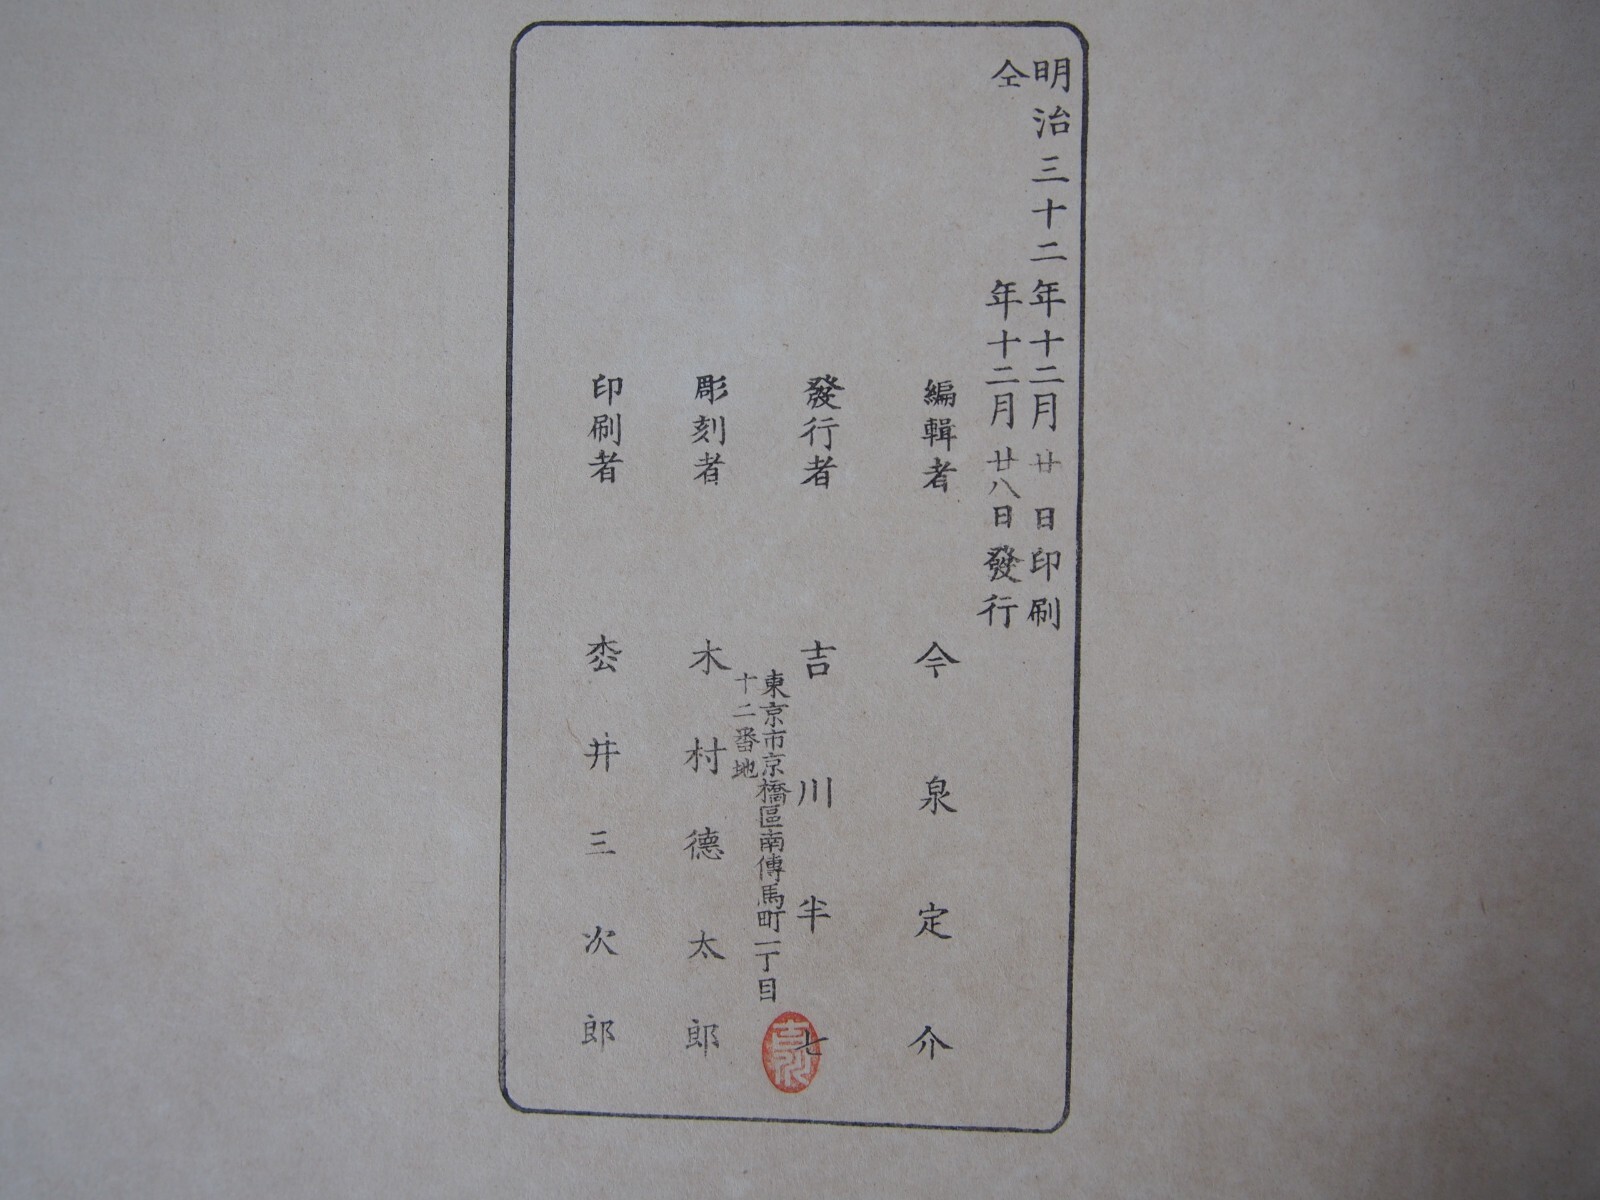 明治三十二年十二月廿日印刷
仝年十二月廿八日發行
編輯者 今泉定介
發行者 吉川半七
東京市京橋區南傳馬町一丁目
十二番地
彫刻者 木村德太郎
印刷者 枩井三次郎
吉川